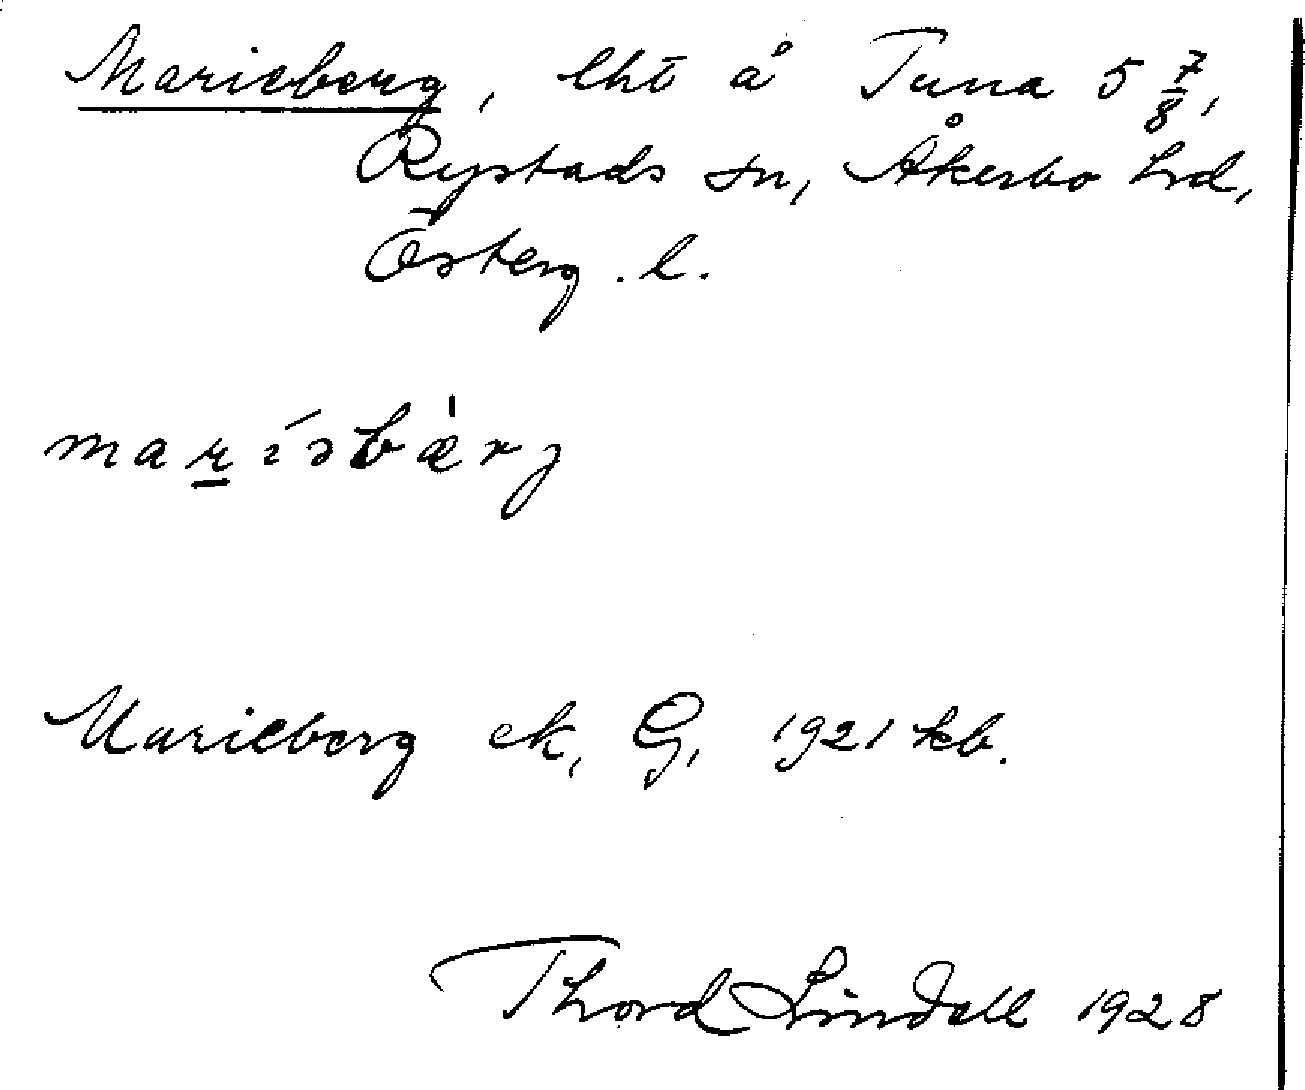 Marieberg, lht å Tuna 5 7/8,
Rystads sn, Åkerbo hrd,
Österg. l.
marísbærj
Marieberg ek, G, 1921 kb.
Thord Lindell 1928